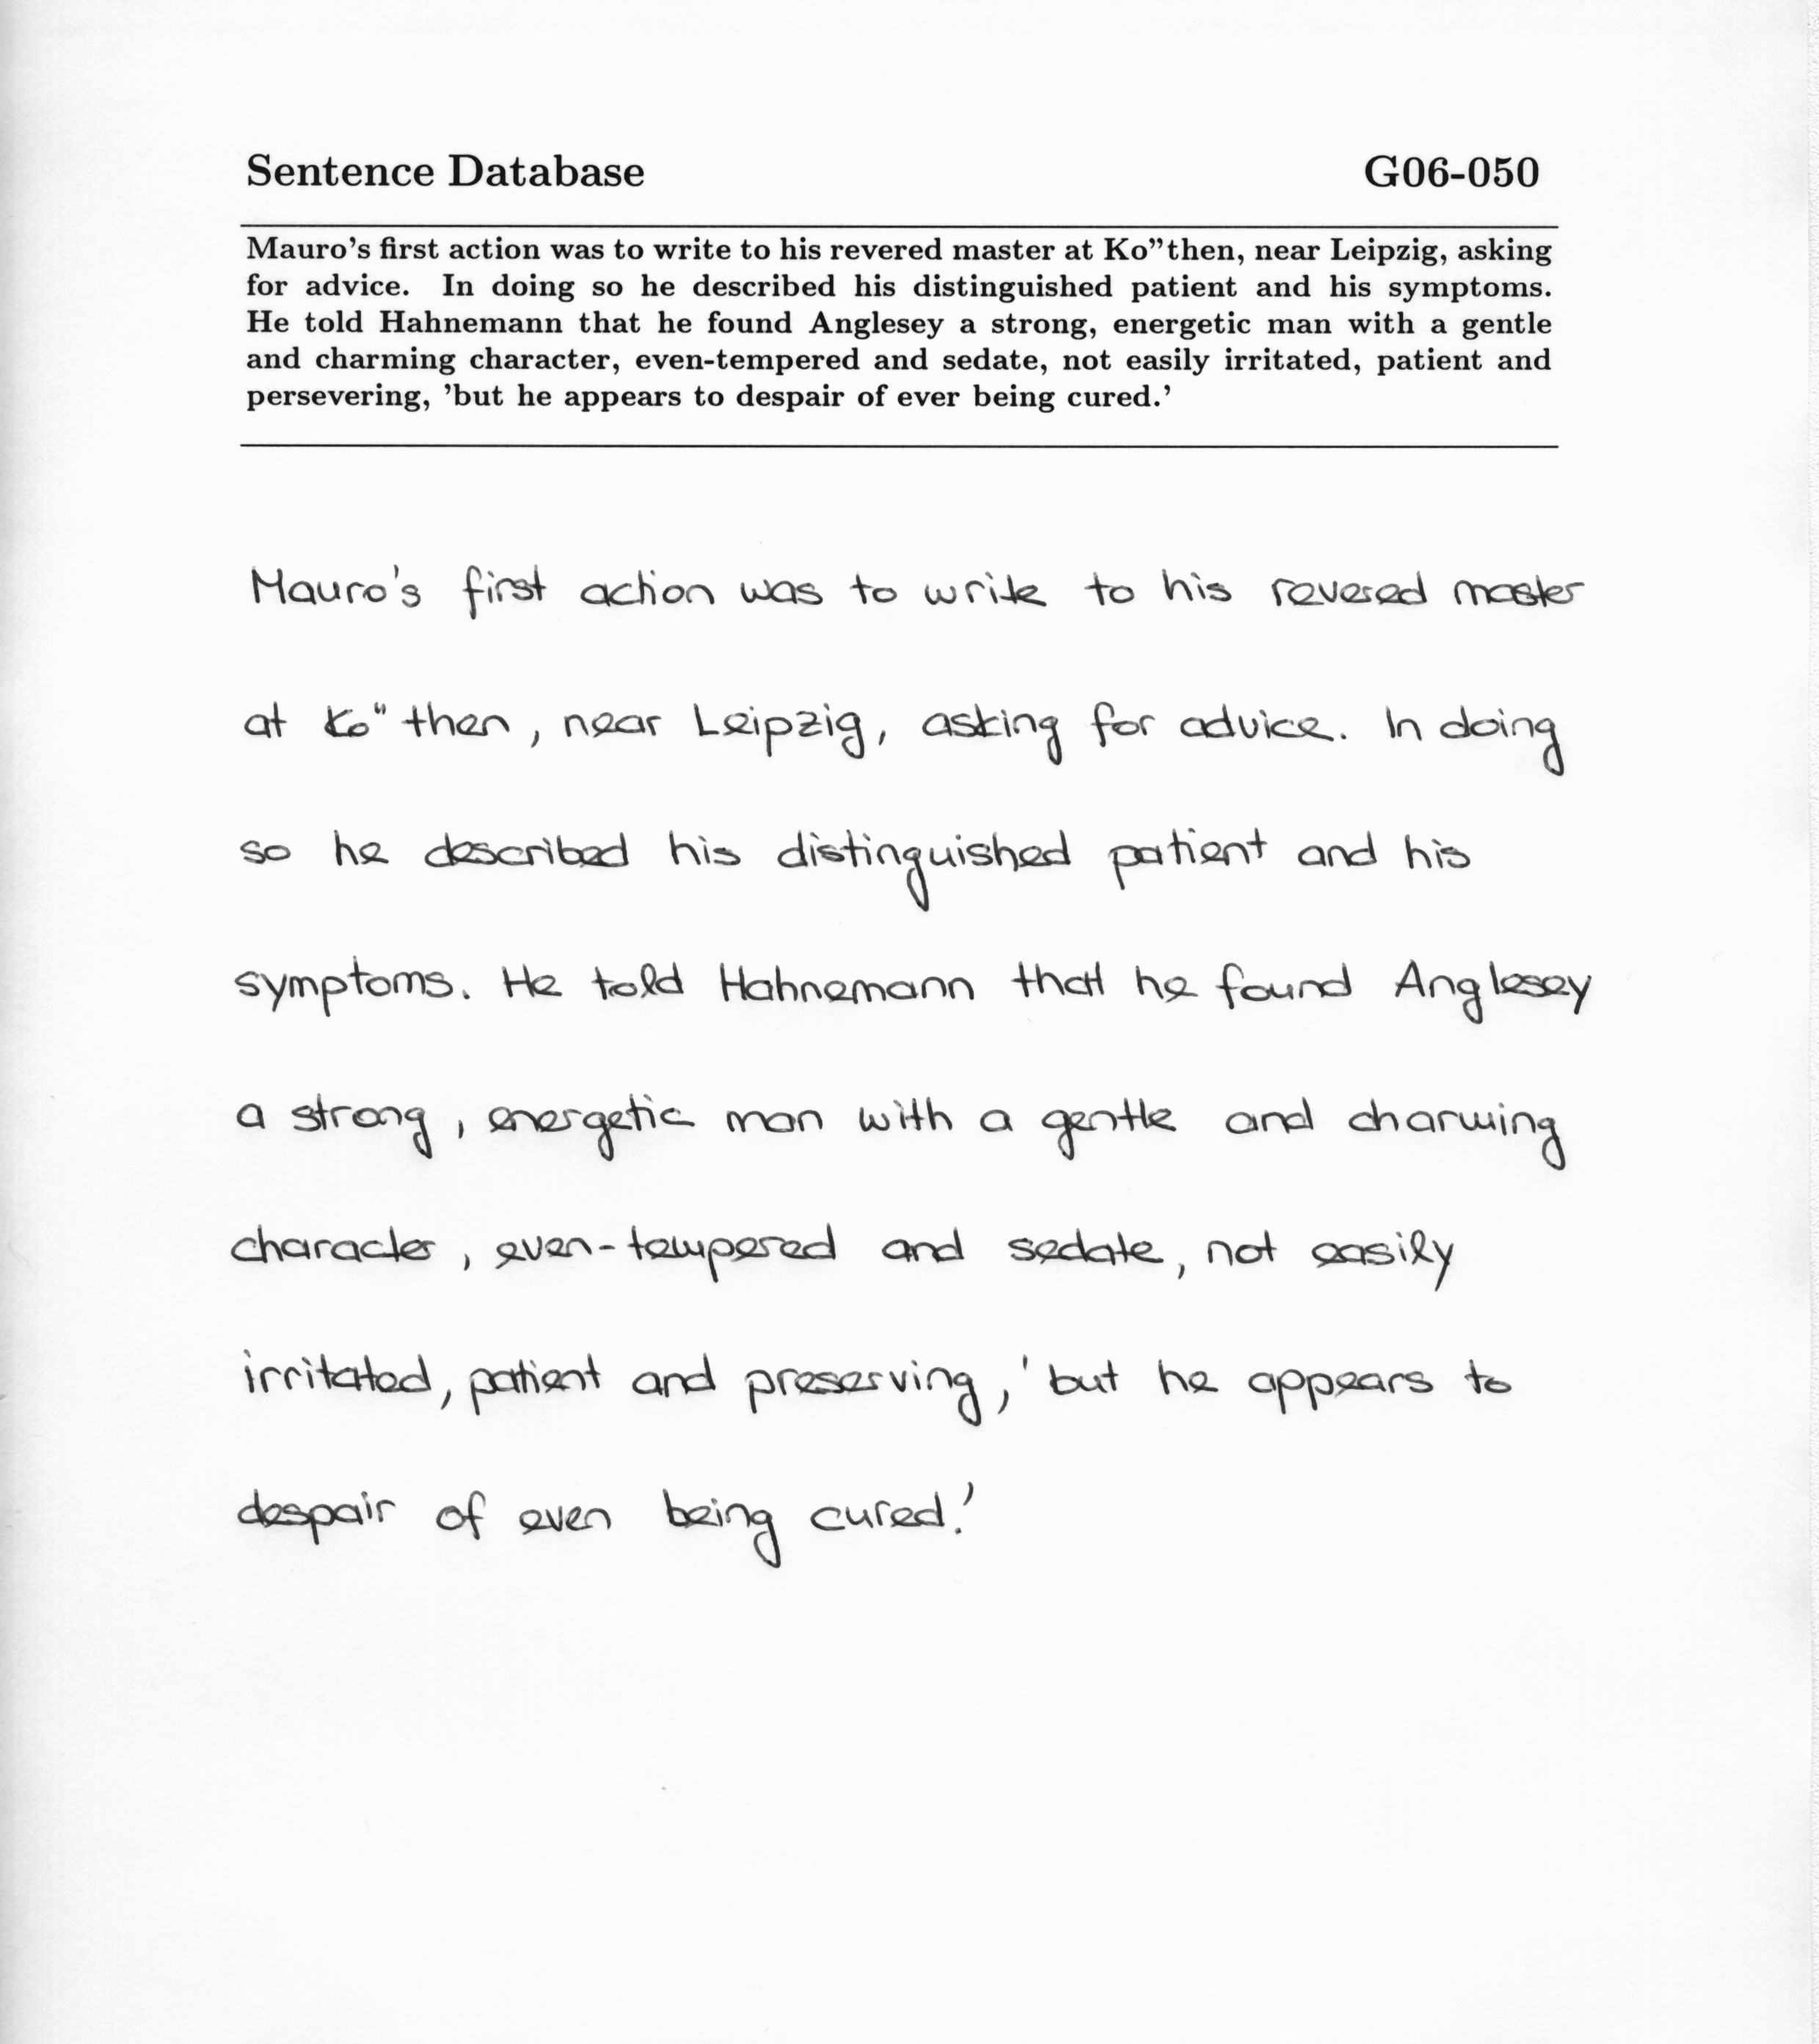 Sentence Database G06-050
Mauro's first action was to write to his revered master at Ko"then, near Leipzig, asking
for advice. In doing so he described his distinguished patient and his symptoms.
He told Hahnemann that he found Anglesey a strong, energetic man with a gentle
and charming character, even-tempered and sedate, not easily irritated, patient and
persevering, 'but he appears to despair of ever being cured.'
Mauro's first action was to write to his revered master
at Ko" then, near Leipzig, asking for advice. In doing
so he described his distinguished patient and his
symptoms. He told Hahnemann that he found Anglesey
a strong, energetic man with a gentle and charming
character, even-tempered and sedate, not easily
irritated, patient and preserving, 'but he appears to
despair of even being cured.'